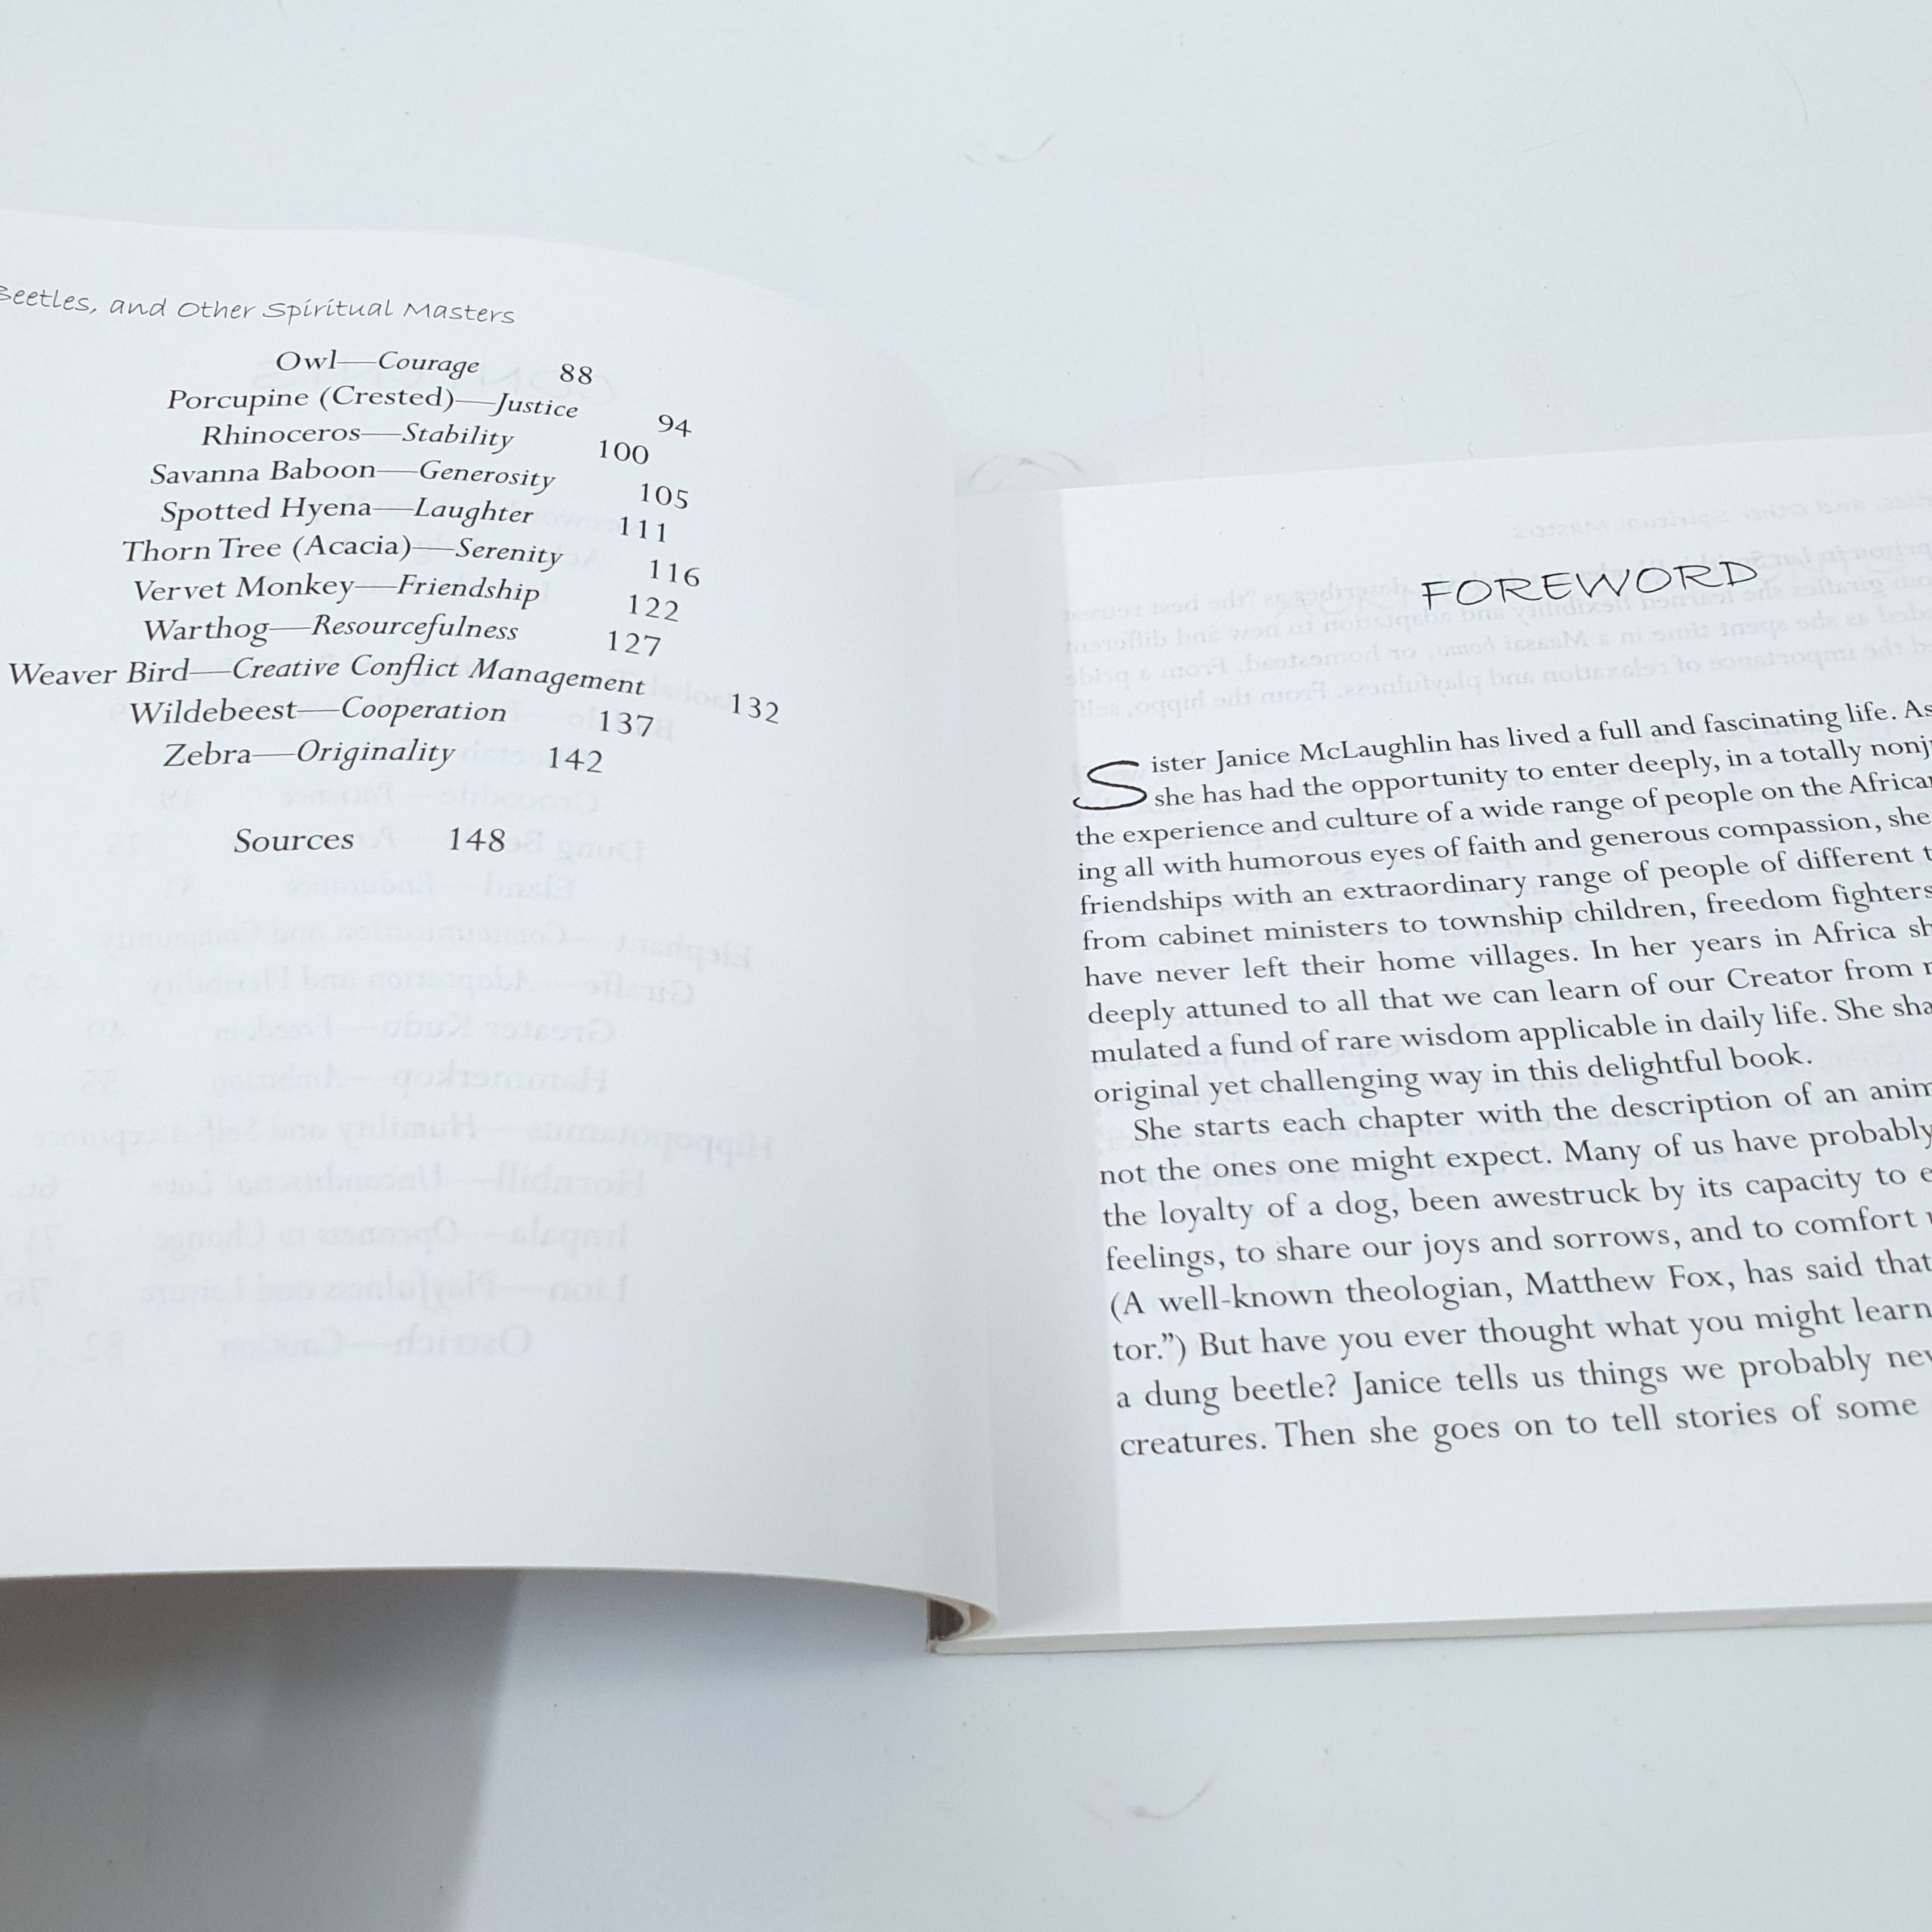 Beetles, and Other Spiritual Masters
Owl—Courage 88
Porcupine (Crested)—Justice 94
Rhinoceros—Stability 100
Savanna Baboon—Generosity 105
Spotted Hyena—Laughter 111
Thorn Tree (Acacia)—Serenity 116
Vervet Monkey—Friendship 122
Warthog—Resourcefulness 127
Weaver Bird—Creative Conflict Management 132
Wildebeest—Cooperation 137
Zebra—Originality 142
Sources 148
FOREWORD
Sister Janice McLaughlin has lived a full and fascinating life. As
she has had the opportunity to enter deeply, in a totally nonj
the experience and culture of a wide range of people on the Africa
ing all with humorous eyes of faith and generous compassion, she
friendships with an extraordinary range of people of different t
from cabinet ministers to township children, freedom fighters
have never left their home villages. In her years in Africa sh
deeply attuned to all that we can learn of our Creator from
mulated a fund of rare wisdom applicable in daily life. She sha
original yet challenging way in this delightful book.
She starts each chapter with the description of an anim
not the ones one might expect. Many of us have probably
the loyalty of a dog, been awestruck by its capacity to e
feelings, to share our joys and sorrows, and to comfort
(A well-known theologian, Matthew Fox, has said that
tor.”) But have you ever thought what you might learn
a dung beetle? Janice tells us things we probably nev
creatures. Then she goes on to tell stories of some